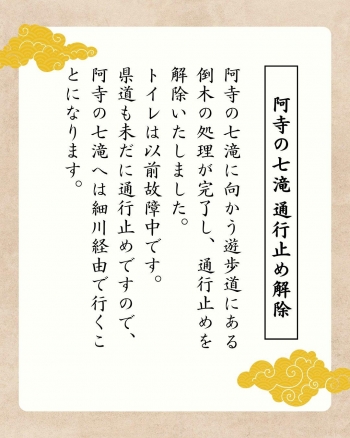 阿寺の七滝 通行止め解除
阿寺の七滝に向かう遊歩道にある
倒木の処理が完了し、通行止めを
解除いたしました。
トイレは以前故障中です。
県道も未だに通行止めですので、
阿寺の七滝へは細川経由で行くこ
とになります。